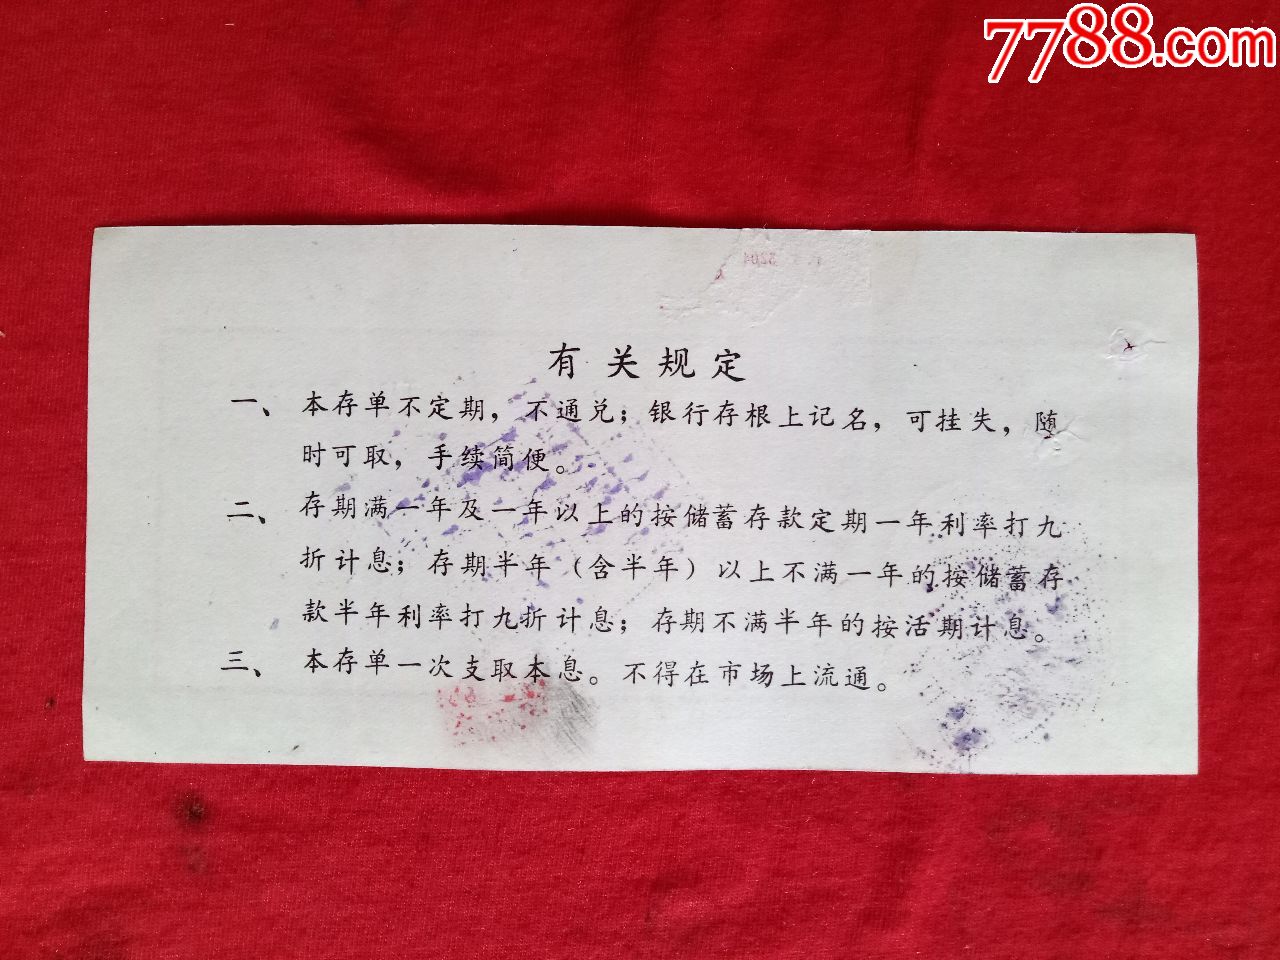 7788.com
有关规定
一、本存单不定期，不通兑；银行存根上记名，可挂失，随
时可取，手续简便。
二、存期满一年及一年以上的按储蓄存款定期一年利率打九
折计息；存期半年（含半年）以上不满一年的按储蓄存
款半年利率打九折计息；存期不满半年的按活期计息。
三、本存单一次支取本息。不得在市场上流通。